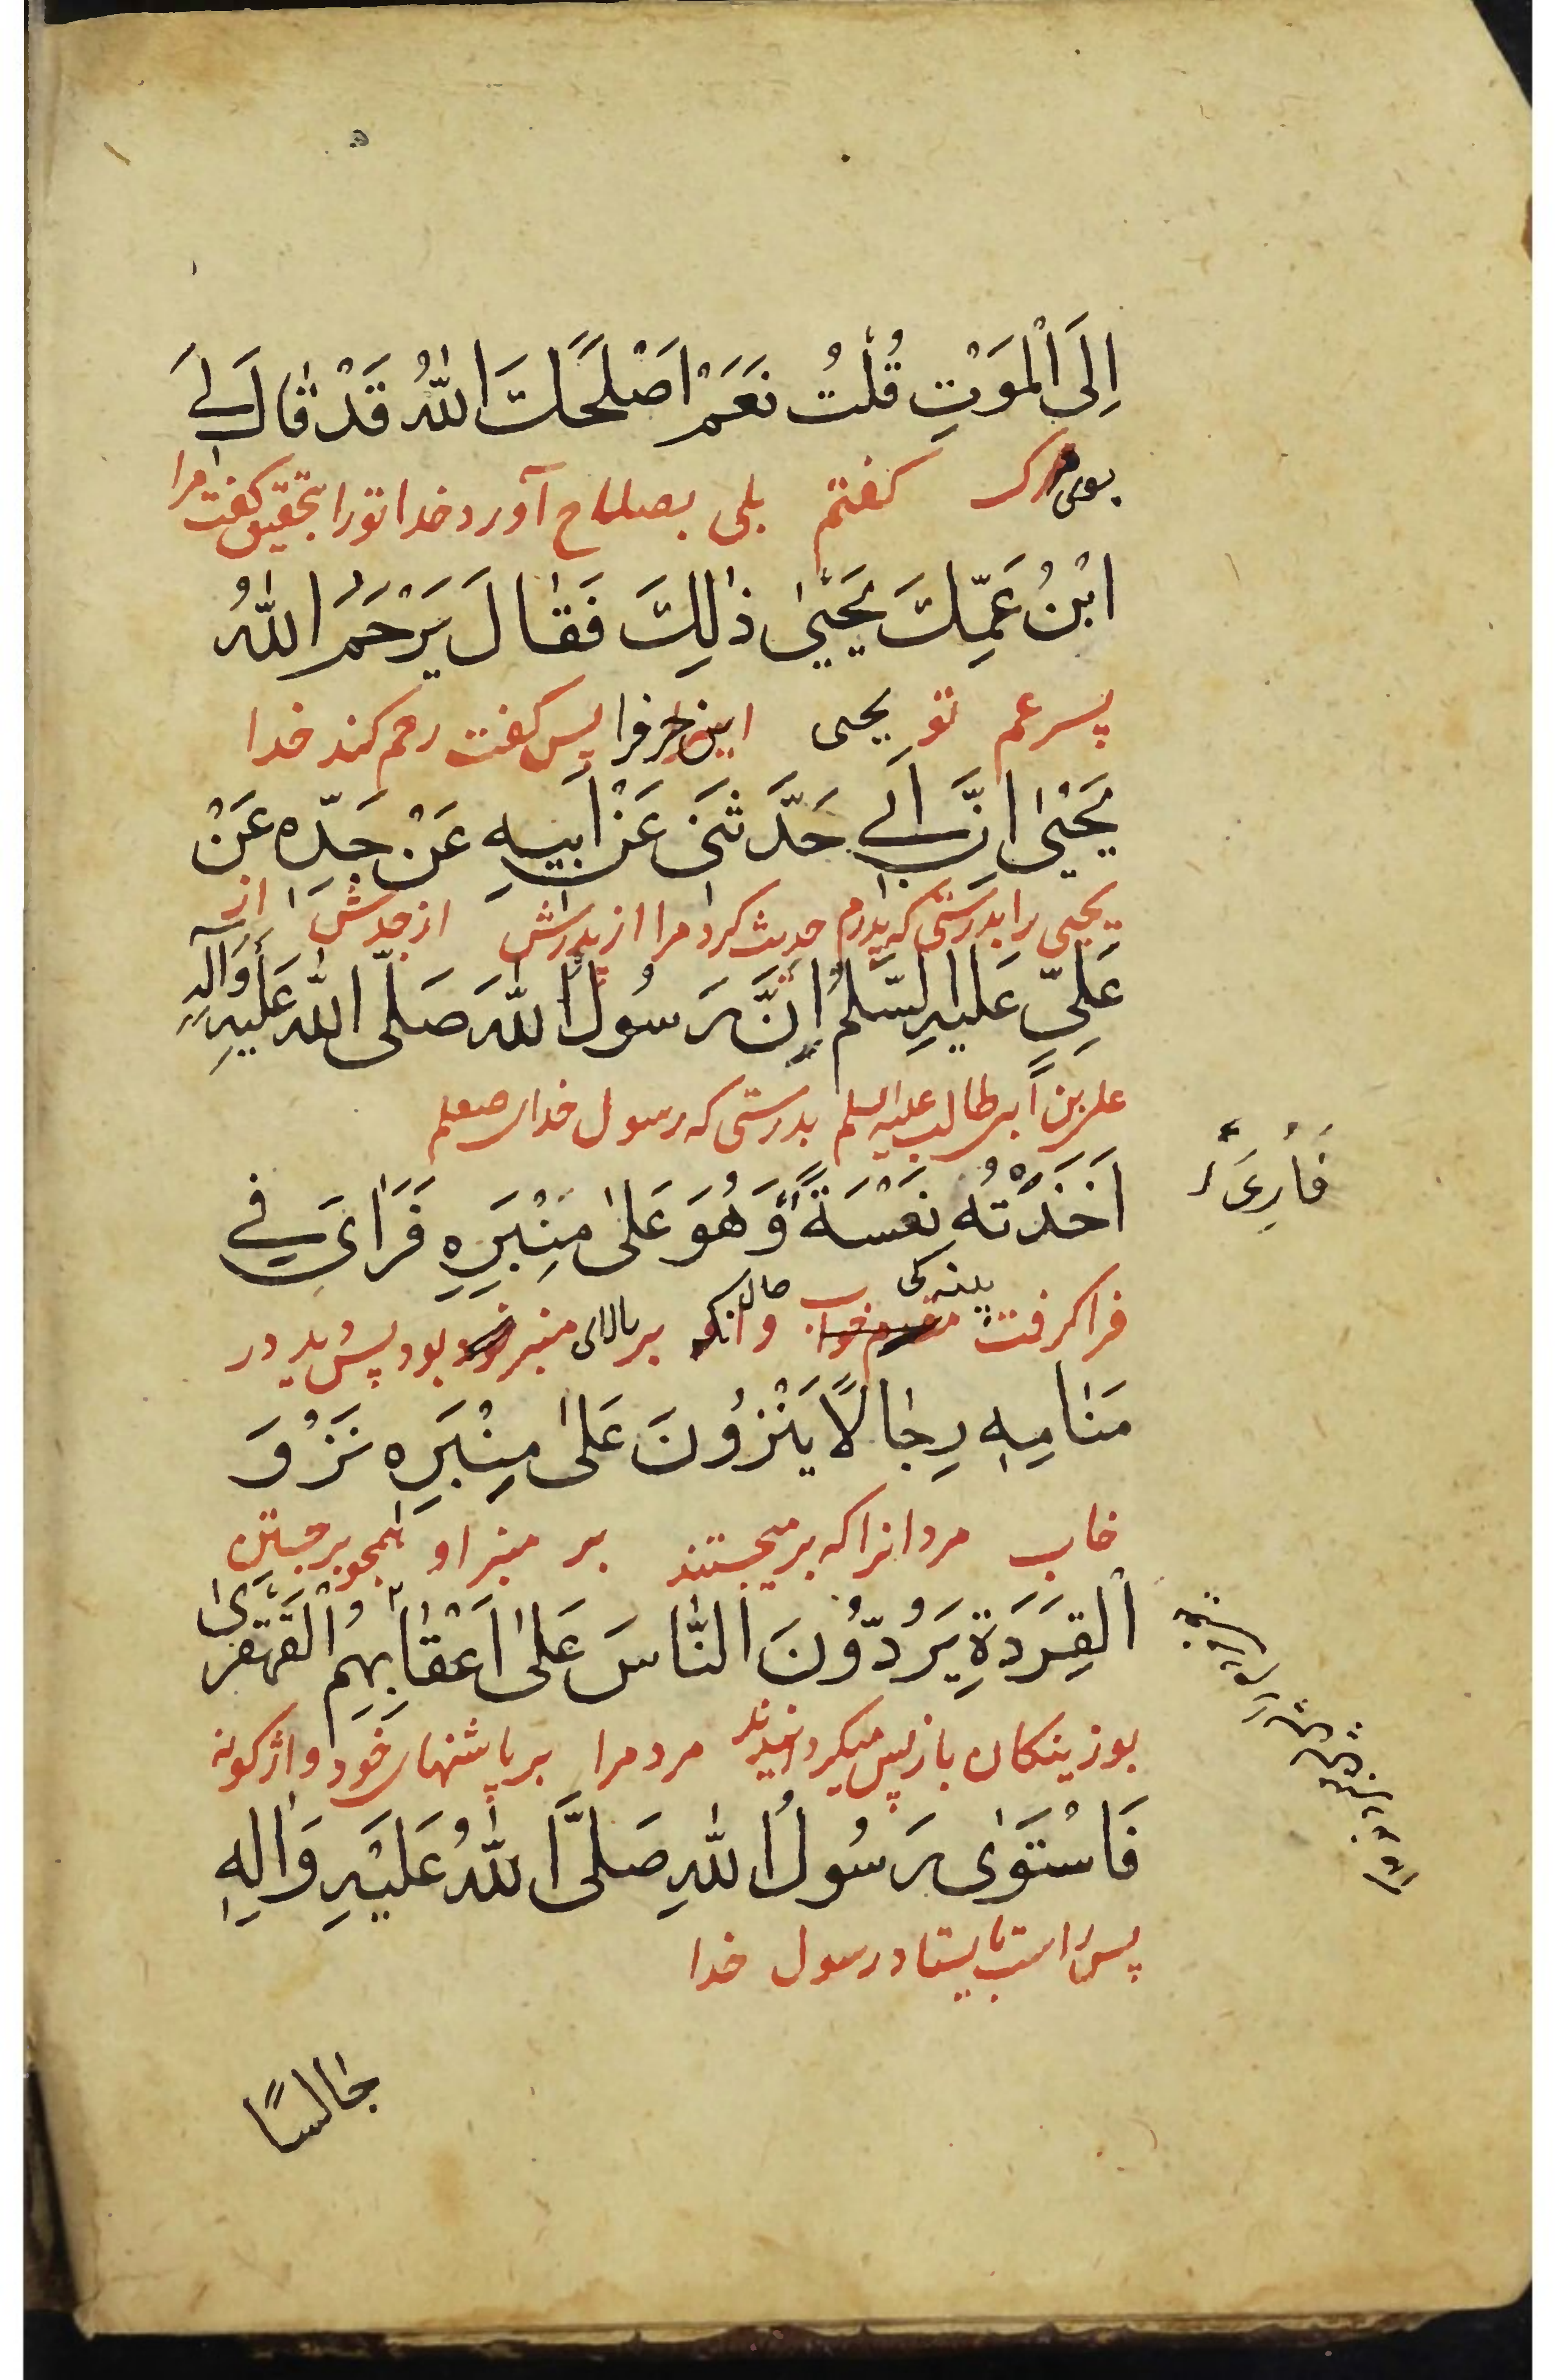 اِلَى الْمَوْتِ قُلْتُ نَعَمْ اَصْلَحَكَ اللّٰهُ قَدْ قٰالَ لِي
بسوی مرک کفتم بلی بصلاح آورد خدا تورا بتحقیق کفت مرا
ابْنُ عَمِّكَ يَحْيىٰ ذٰلِكَ فَقٰالَ يَرْحَمُ اللّٰهُ
پسر عم تو یحیی این حرفرا پس کفت رحم کند خدا
يَحْيىٰ اِنَّ اَبِي حَدَّثَنِي عَنْ اَبِيهِ عَنْ جَدِّهِ عَنْ
یحیی را بدرستی که پدرم حدیث کرد مرا از پدرش از جدش از
عَلِيٍّ عَلَيْهِ السَّلٰمُ اِنَّ رَسُولَ اللّٰهِ صَلَّى اللّٰهُ عَلَيْهِ وَآلِهِ
علی بن ابی طالب علیه السلم بدرستی که رسول خدای صعلم
اَخَذَتْهُ نَعْسَةٌ وَهُوَ عَلىٰ مِنْبَرِهِ فَرَاىٰ فِي
فَأُرِيَ
فرا کرفت پینه‌کی و حال آنکه بر بالای منبر بود پس دید در
مَنٰامِهِ رِجٰالًا يَنْزُونَ عَلىٰ مِنْبَرِهِ نَزْوَ
خاب مردانرا که برمیجستند بر منبر او همچو برجستن
الْقِرَدَةِ يَرُدُّونَ النّٰاسَ عَلىٰ اَعْقٰابِهِمُ الْقَهْقَرىٰ
بوزینکان باز پس میکردانیدند مردمرا بر پاشنهای خود واژکونه
فَاسْتَوىٰ رَسُولُ اللّٰهِ صَلَّى اللّٰهُ عَلَيْهِ وَاٰلِهِ
پس راست بایستاد رسول خدا
جٰالِسًا